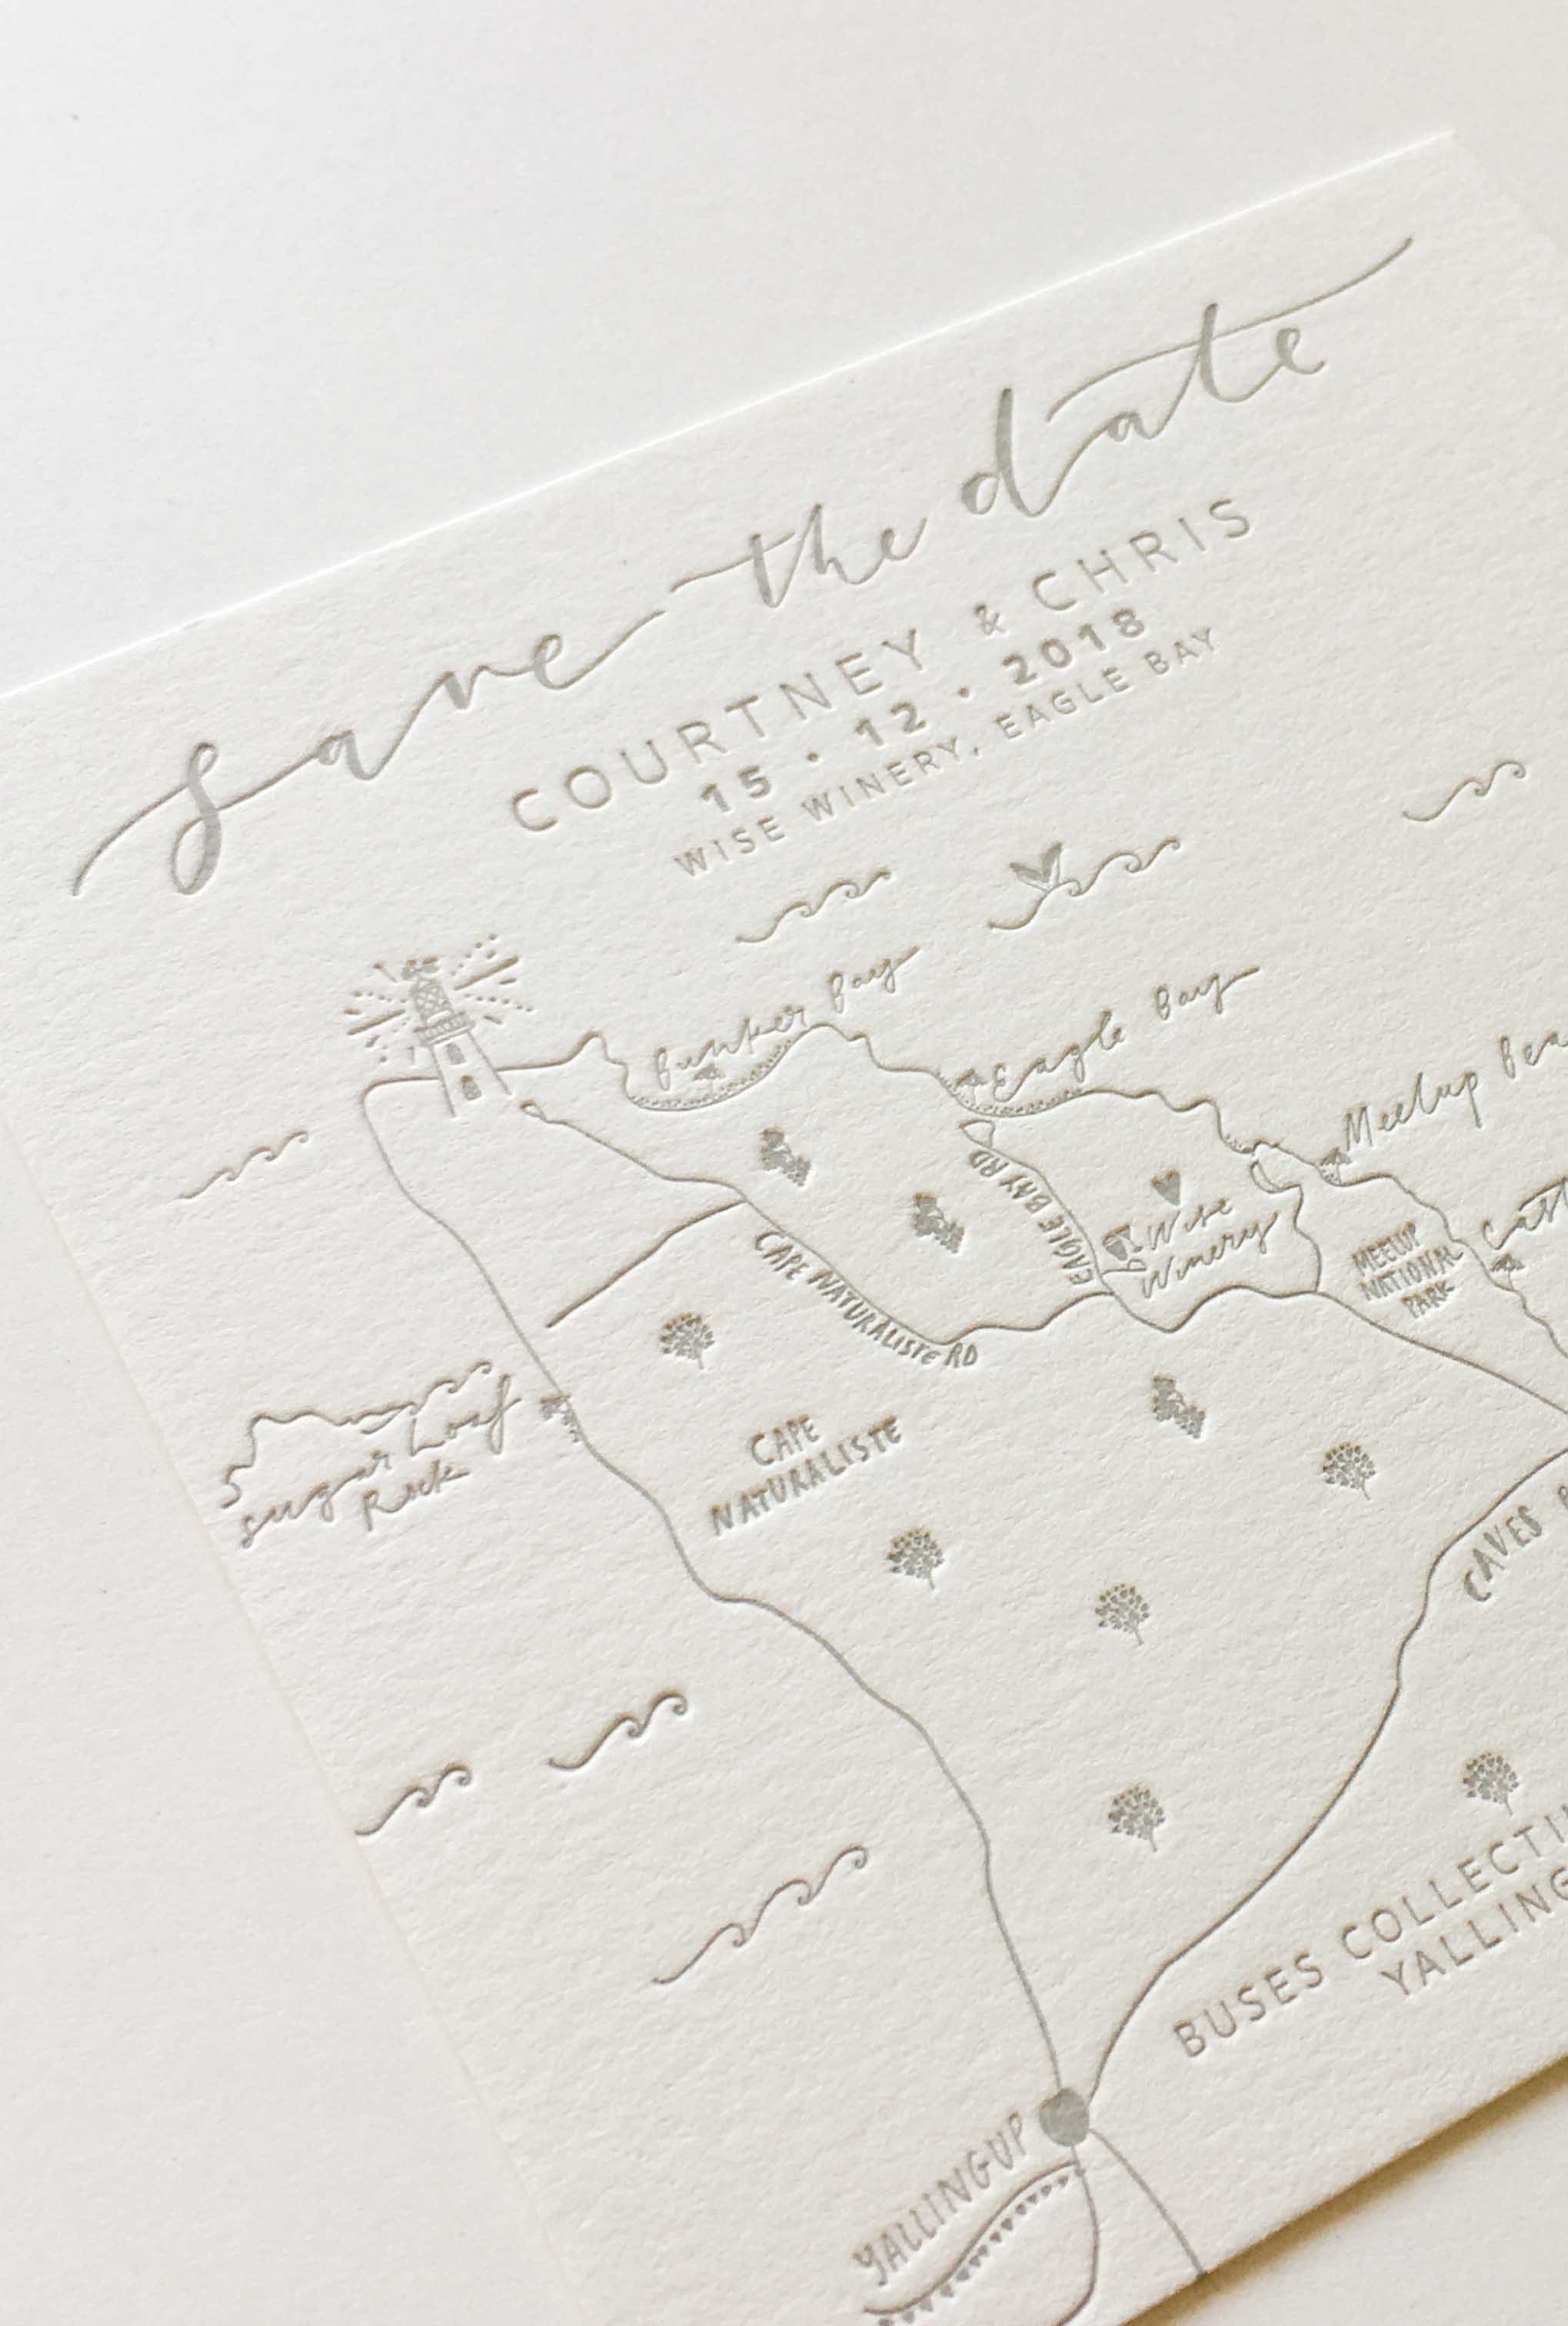 save the date
COURTNEY & CHRIS
15 · 12 · 2018
WISE WINERY, EAGLE BAY
Bunker Bay
Eagle Bay
Meelup
EAGLE BAY RD
Wise
Winery
MEELUP
NATIONAL
PARK
CAPE NATURALISTE RD
Sugar Loaf
Rock
CAPE
NATURALISTE
CAVES
BUSES
YALLINGUP